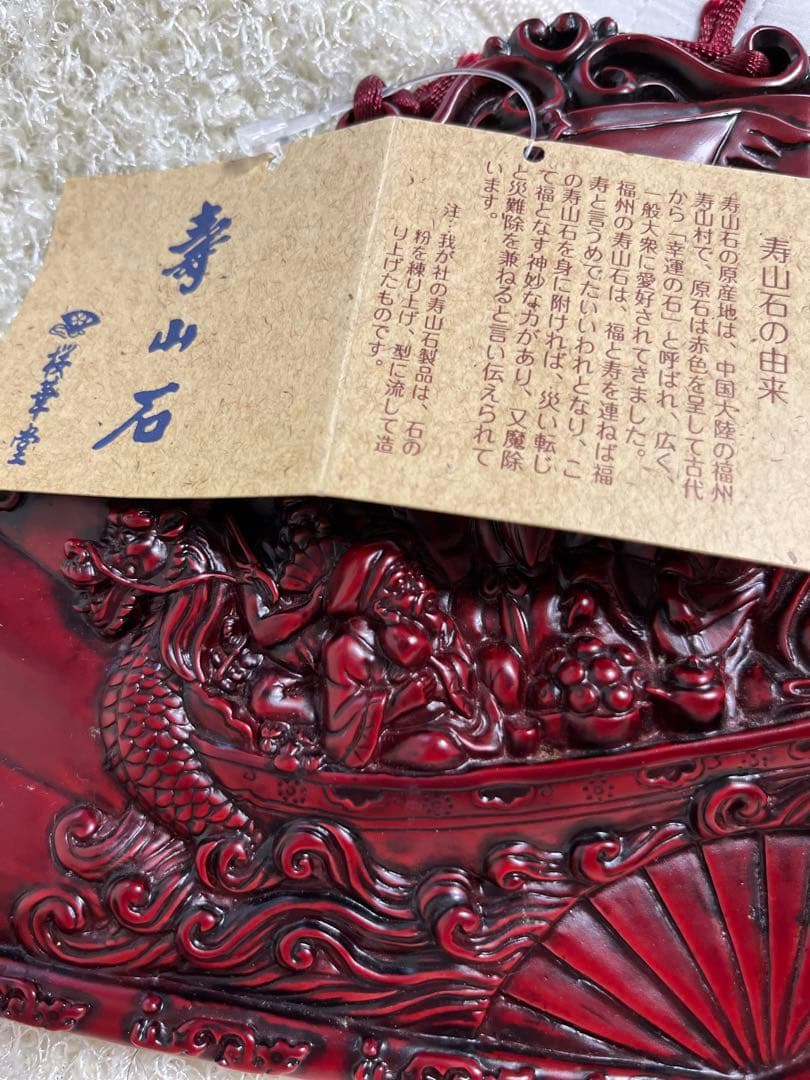 寿山石の由来
寿山石の原産地は、中国大陸の福州
寿山村で、原石は赤色を呈して古代
から「幸運の石」と呼ばれ、広く、
一般大衆に愛好されてきました。
福州の寿山石は、福と寿を連ねば福
寿と言うめでたいいわれとなり、こ
の寿山石を身に附ければ、災い転じ
て福となす神妙な力があり、又魔除
と災難除を兼ねると言い伝えられて
います。
注…我が社の寿山石製品は、石の
粉を練り上げ、型に流して造
り上げたものです。
壽山石
桜華堂